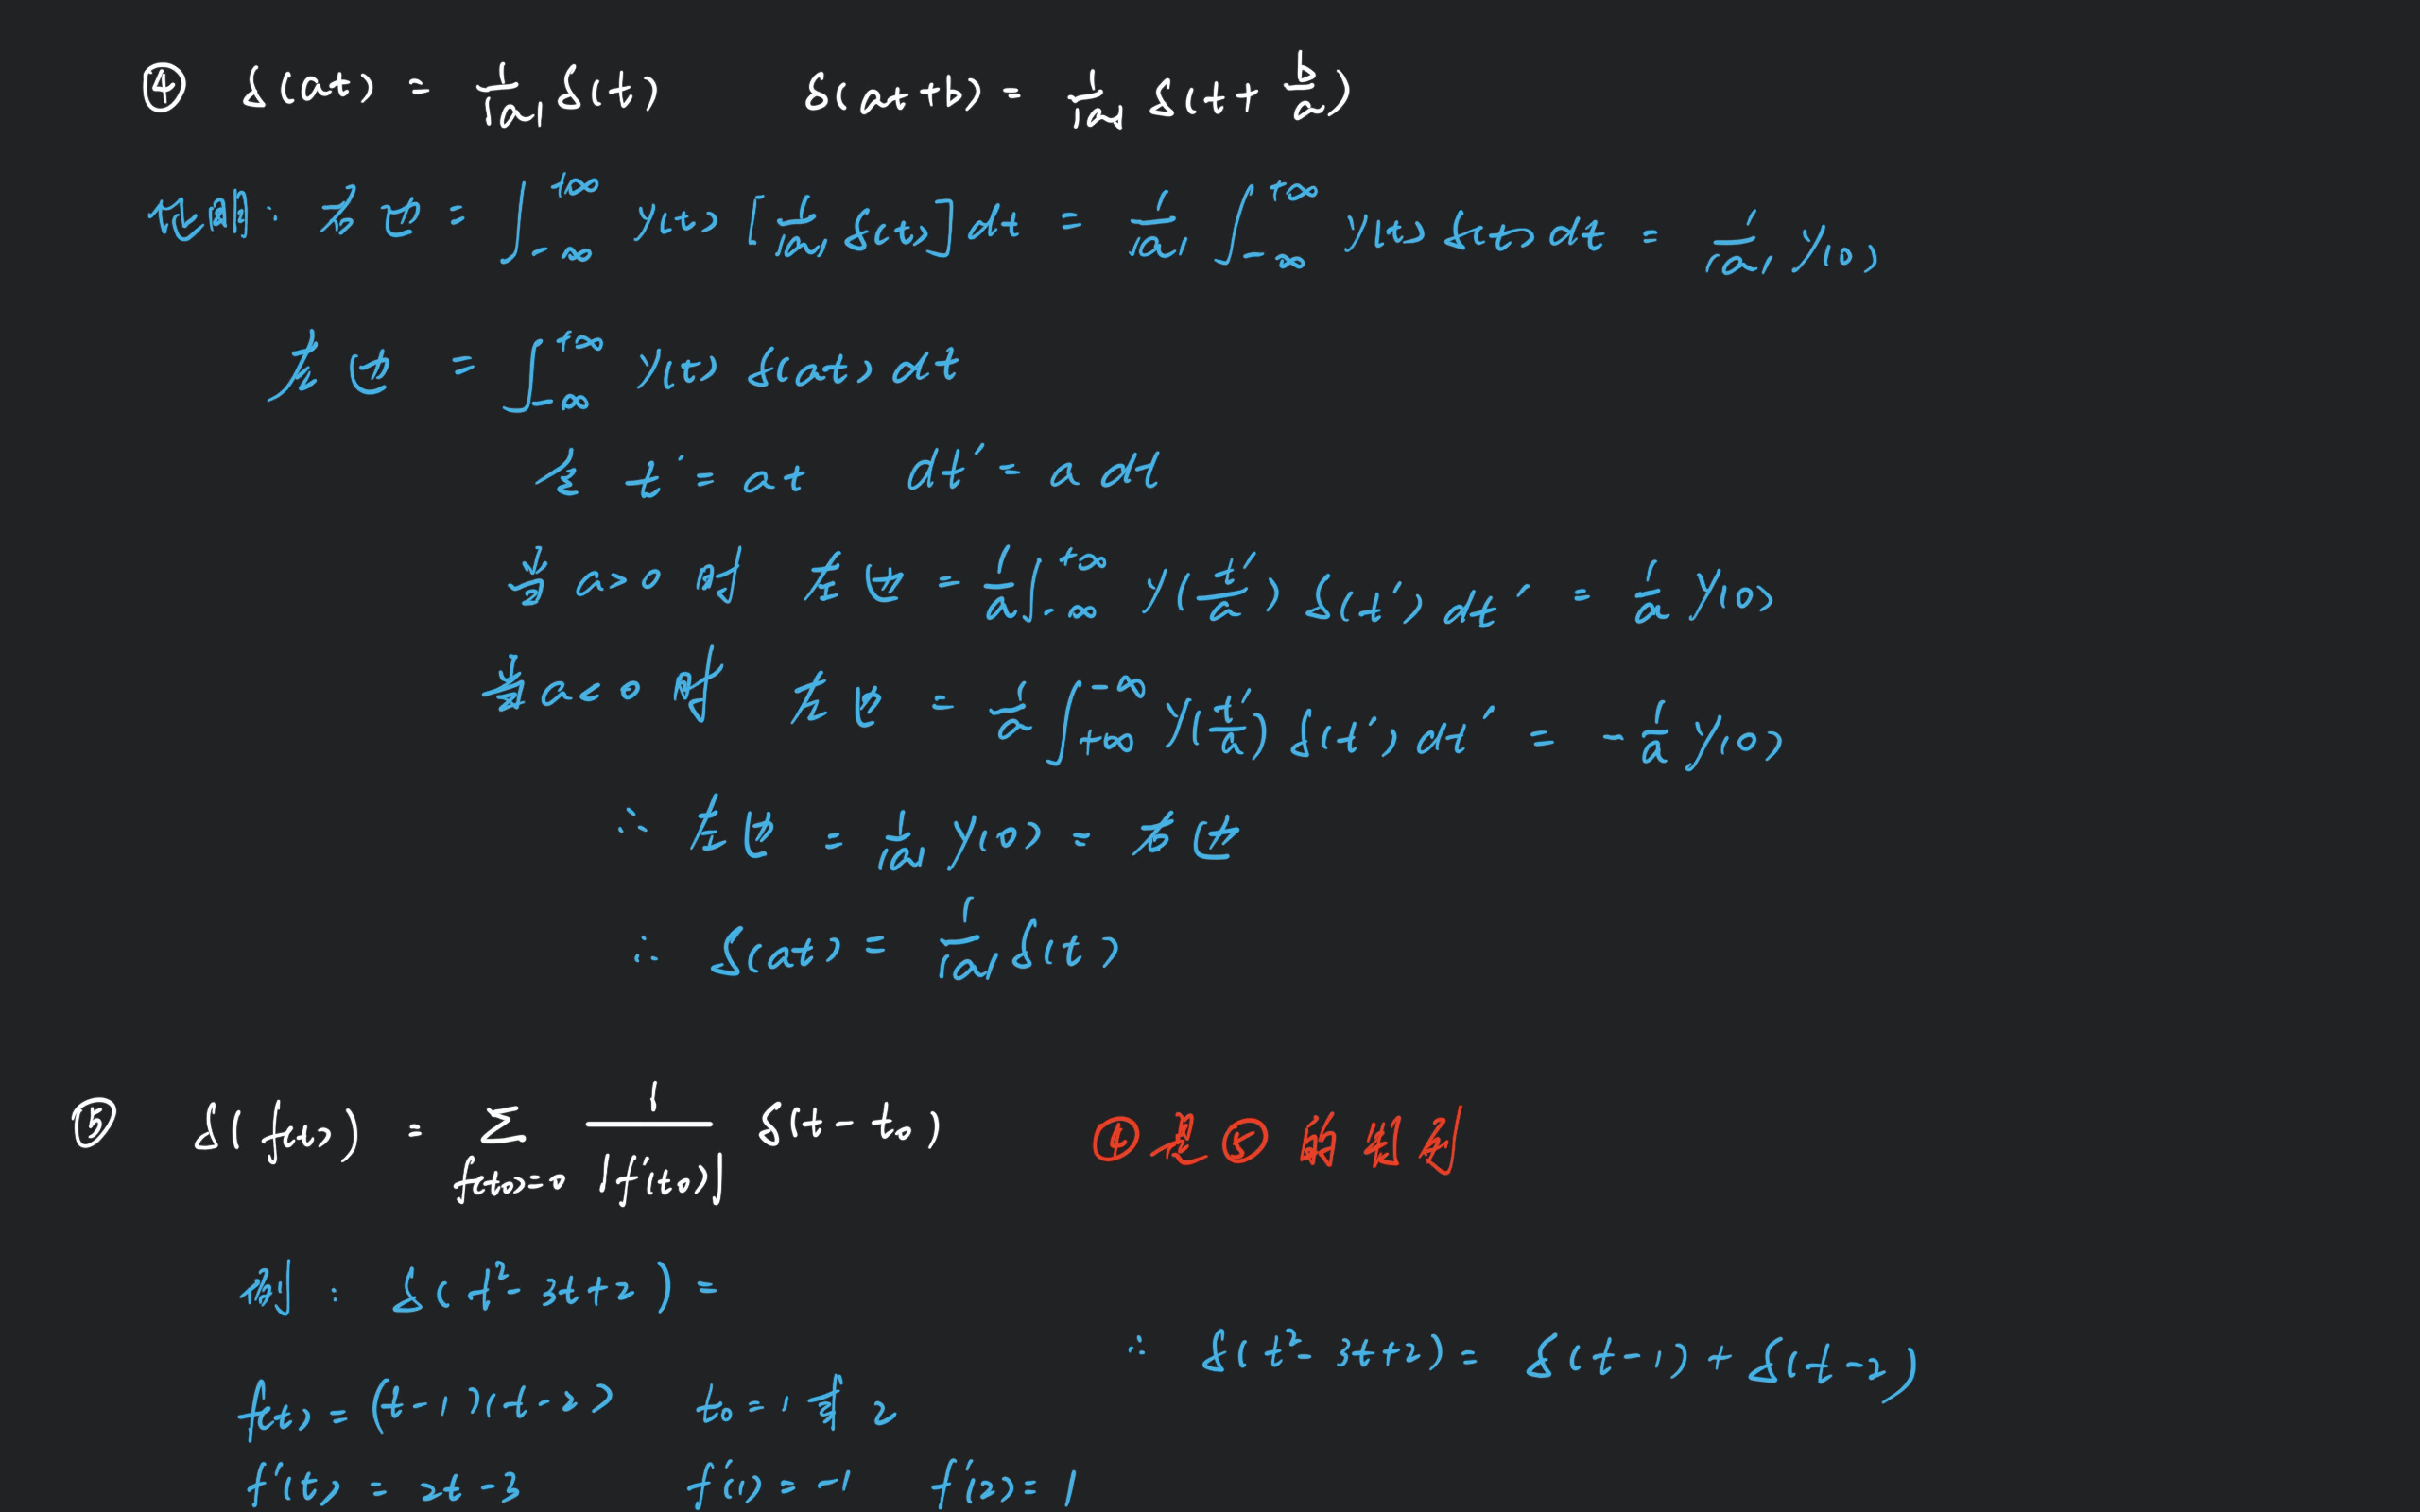 ④ δ(at) = 1/|a| δ(t)　　δ(at+b) = 1/|a| δ(t + b/a)
证明: 右边 = ∫_{-∞}^{+∞} y(t) [1/|a| δ(t)] dt = 1/|a| ∫_{-∞}^{+∞} y(t) δ(t) dt = 1/|a| y(0)
左边 = ∫_{-∞}^{+∞} y(t) δ(at) dt
令 t' = at　　dt' = a dt
当 a>0 时　左边 = 1/a ∫_{-∞}^{+∞} y(t'/a) δ(t') dt' = 1/a y(0)
当 a<0 时　左边 = 1/a ∫_{+∞}^{-∞} y(t'/a) δ(t') dt' = -1/a y(0)
∴ 左边 = 1/|a| y(0) = 右边
∴ δ(at) = 1/|a| δ(t)
⑤ δ(f(t)) = Σ_{f(t₀)=0} 1/|f'(t₀)| δ(t - t₀)　　④是⑤的特例
例: δ(t² - 3t + 2) =
∴ δ(t² - 3t + 2) = δ(t-1) + δ(t-2)
f(t) = (t-1)(t-2)　　t₀ = 1 或 2
f'(t) = 2t - 3　　f'(1) = -1　　f'(2) = 1